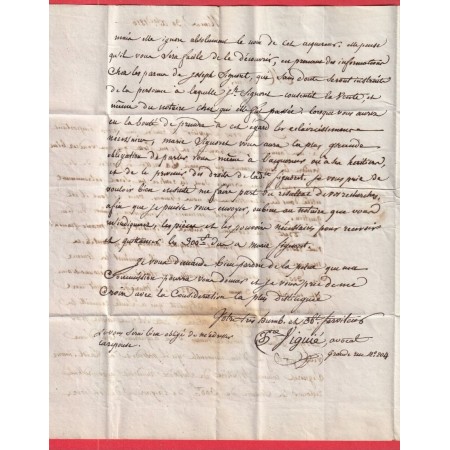 mais elle ignore absolument le nom de cet acquereur, elle pense
qu'il vous sera facile de le découvrir, en prenant des informations
chez les parens de joseph Signoret, qui sans doute seront instruits
de la personne à laquelle Jh. Signoret consentit la vente, et
même du notaire chez qui elle fut passée; lorsque vous aurez
eu la bonté de prendre à cet égard les eclaircissemens
nécessaires, marie Signoret vous aura la plus grande
obligation de parler vous même à l'acquereur ou à ses héritiers
et de le prevenir des droits de ladite signoret. je vous prie de
vouloir bien ensuite me faire part du resultat de vos recherches,
afin que je puisse vous envoyer, ou bien au notaire que vous
m'indiquerez, les pièces et les pouvoirs nécessaires pour recevoir
et quittancer les 300# dus a marie signoret.
je vous demande bien pardon de la peine que ma
Commission pourra vous donner et je vous prie de me
Croire avec la Consideration la plus distinguée
Votre très humb. et obt. serviteur
Siguié, avocat
grande rue No. 204
Je vous serai bien obligé de m'adresser
la réponse.